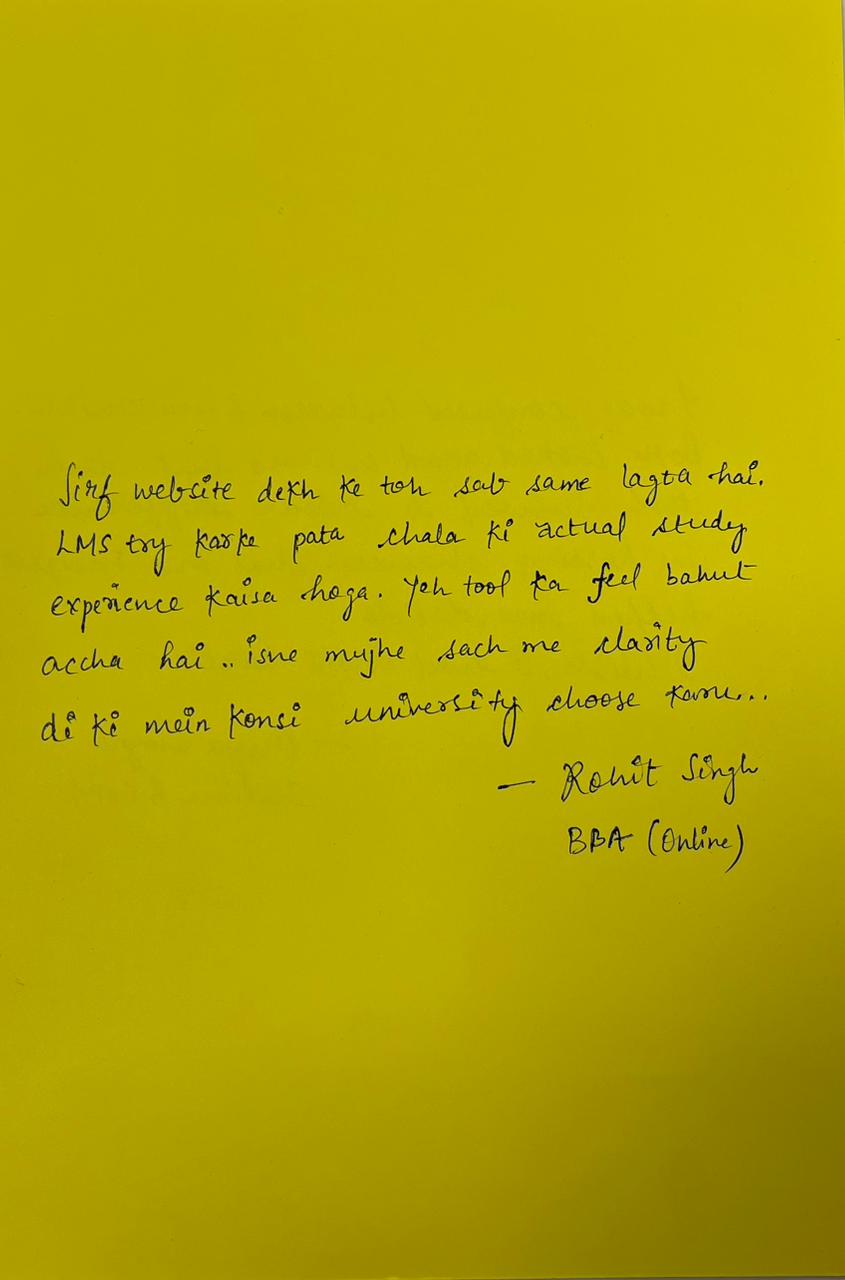 Sirf website dekh ke toh sab same lagta hai.
LMS try karke pata chala ki actual study
experience kaisa hoga. Yeh tool ka feel bahut
accha hai .. isne mujhe sach me clarity
di ki mein konsi university choose karu...
— Rohit Singh
BBA (Online)